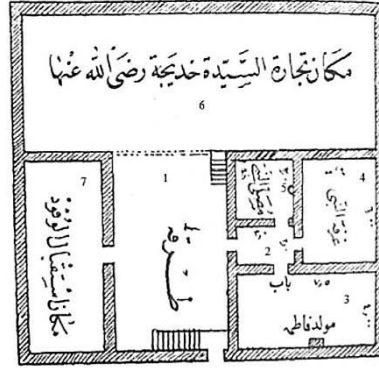 مكان تجارة السيّدة خديجة رضي الله عنها
6
7
1
5
4
مكان استقبال الوفود
مصلى النبي
غرفة النبي
2
باب
3
مولد فاطمه